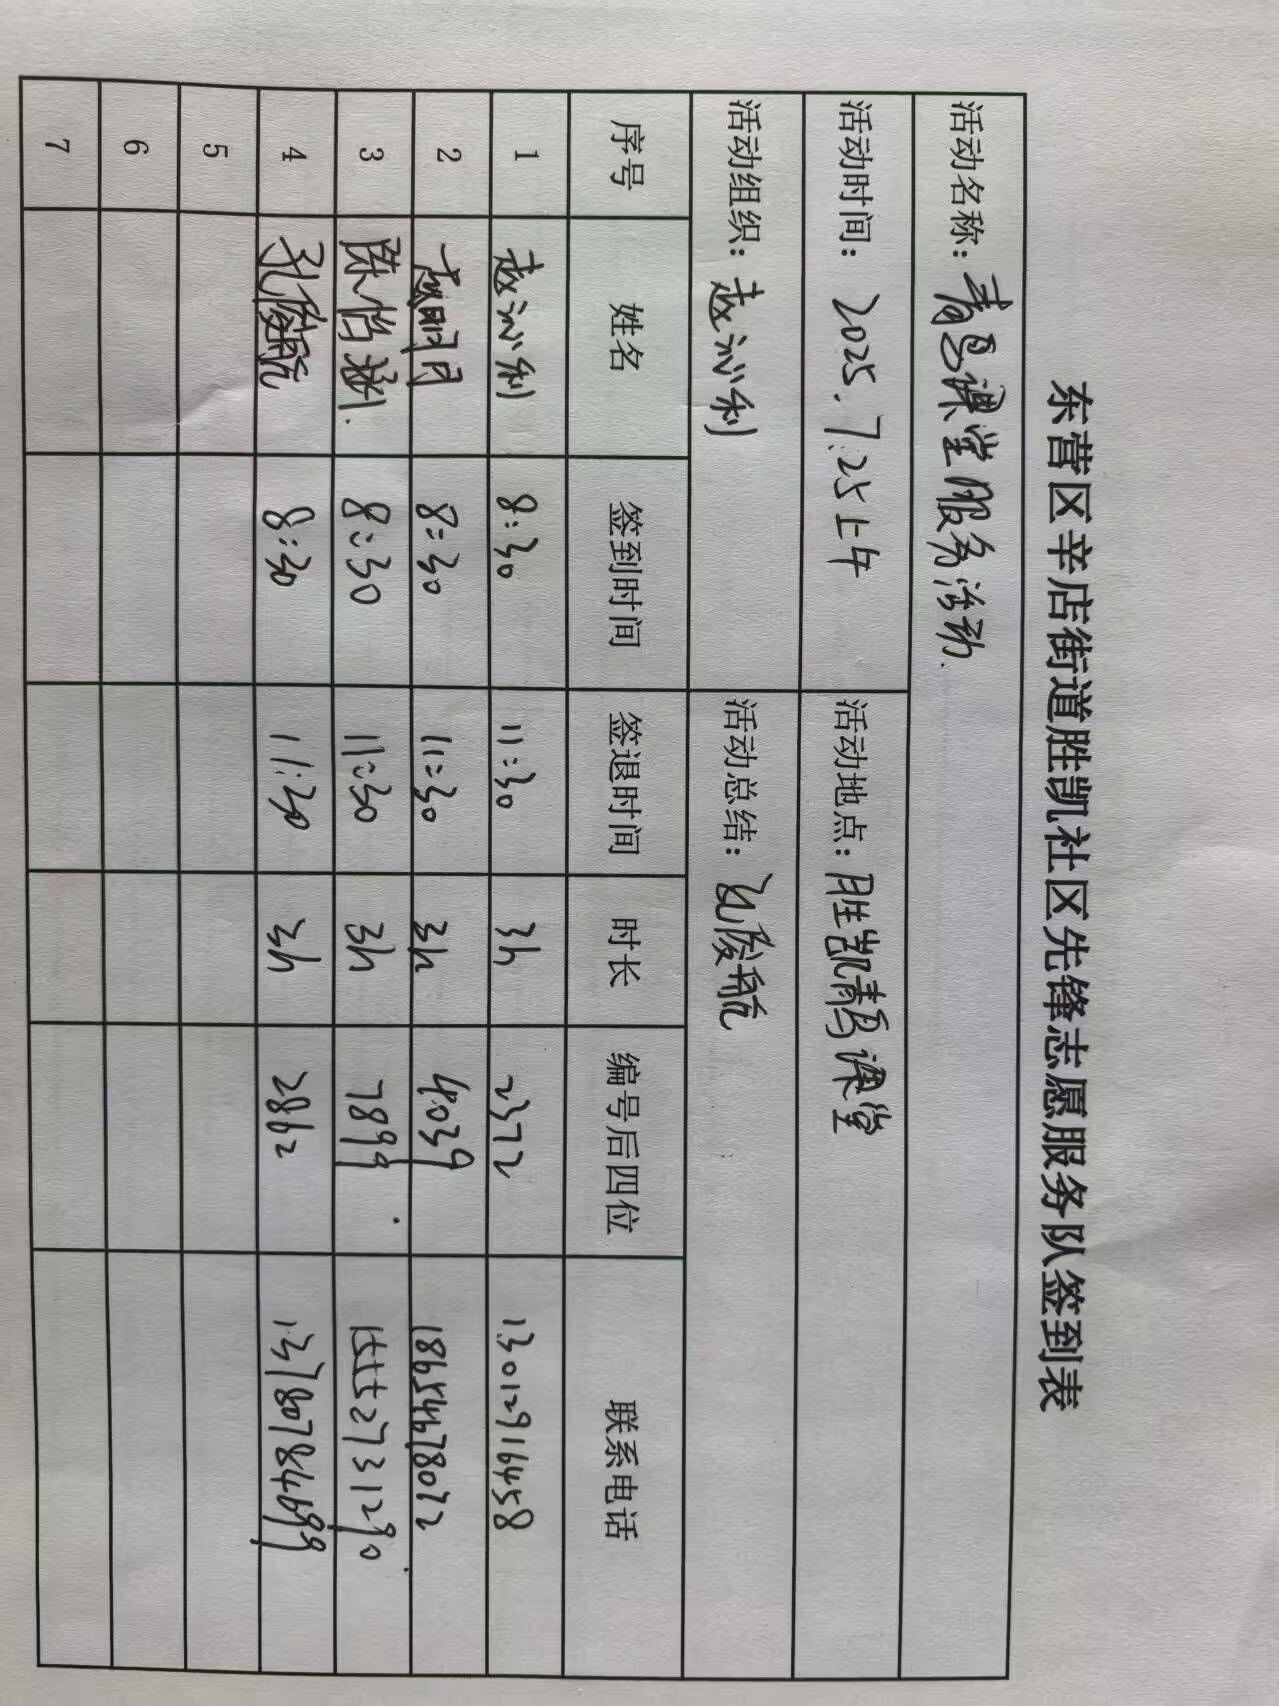 东营区辛店街道胜凯社区先锋志愿服务队签到表
活动名称：青鸟课堂服务活动.
活动时间：2025.7.25上午 活动地点：胜凯青鸟课堂
活动组织：赵沁利 活动总结：孔俊航
序号 姓名 签到时间 签退时间 时长 编号后四位 联系电话
1 赵沁利 8:30 11:30 3h 2372 13012916458
2 明月 8:30 11:30 3h 4039 18654678072
3 陈怡 8:30 11:30 3h 7899 15552731290
4 孔俊航 8:30 11:30 3h 2862 13780784699
5
6
7